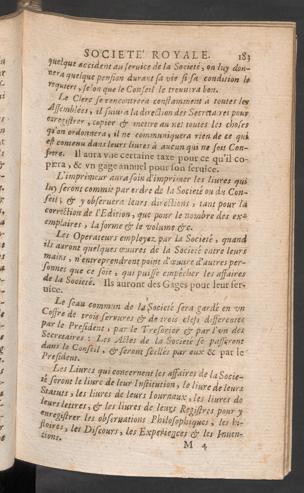 SOCIETE' ROYALE. 183
quelque accident au seruice de la Societé, on luy don-
nera quelque pension durant sa vie si sa condition le
requiert, selon que le Conseil le trouuera bon.
Le Clerc se rencontrera constamment a toutes les
Assemblées, il suiura la direction des Secretaires pour
enregistrer, copier & mettre au net toutes les choses
qu'on ordonnera, il ne communiquera rien de ce qui
est contenu dans leurs liures à aucun qui ne soit Con-
frere. Il aura vne certaine taxe pour ce qu'il co-
piera, & vn gage annuel pour son seruice.
L'imprimeur aura soin d'imprimer les liures qui
luy seront commis par ordre de la Societé ou du Con-
seil; & y obseruera leurs directions, tant pour la
correction de l'Edition, que pour le nombre des ex-
emplaires, la forme & le volume &c.
Les Operateurs employez par la Societé, quand
ils auront quelques œuures de la Societé entre leurs
mains, n'entreprendront point d'œuure d'autres per-
sonnes que ce soit, qui puisse empêcher les affaires
de la Societé. Ils auront des Gages pour leur ser-
uice.
Le seau commun de la Societé sera gardé en vn
Coffre de trois serrures & de trois clefs differentes
par le President, par le Tresorier & par l'vn des
Secretaires: Les Actes de la Societé se passeront
dans le Conseil, & seront séellés par eux & par le
President.
Les Liures qui concernent les affaires de la Socie-
té seront le liure de leur Institution, le liure de leurs
Statuts, les liures de leurs Iournaux, les liures de
leurs lettres, & les liures de leurs Registres pour y
enregistrer les obseruations Philosophiques, les hi-
stoires, les Discours, les Experiences & les Inuen-
tions.
M 4